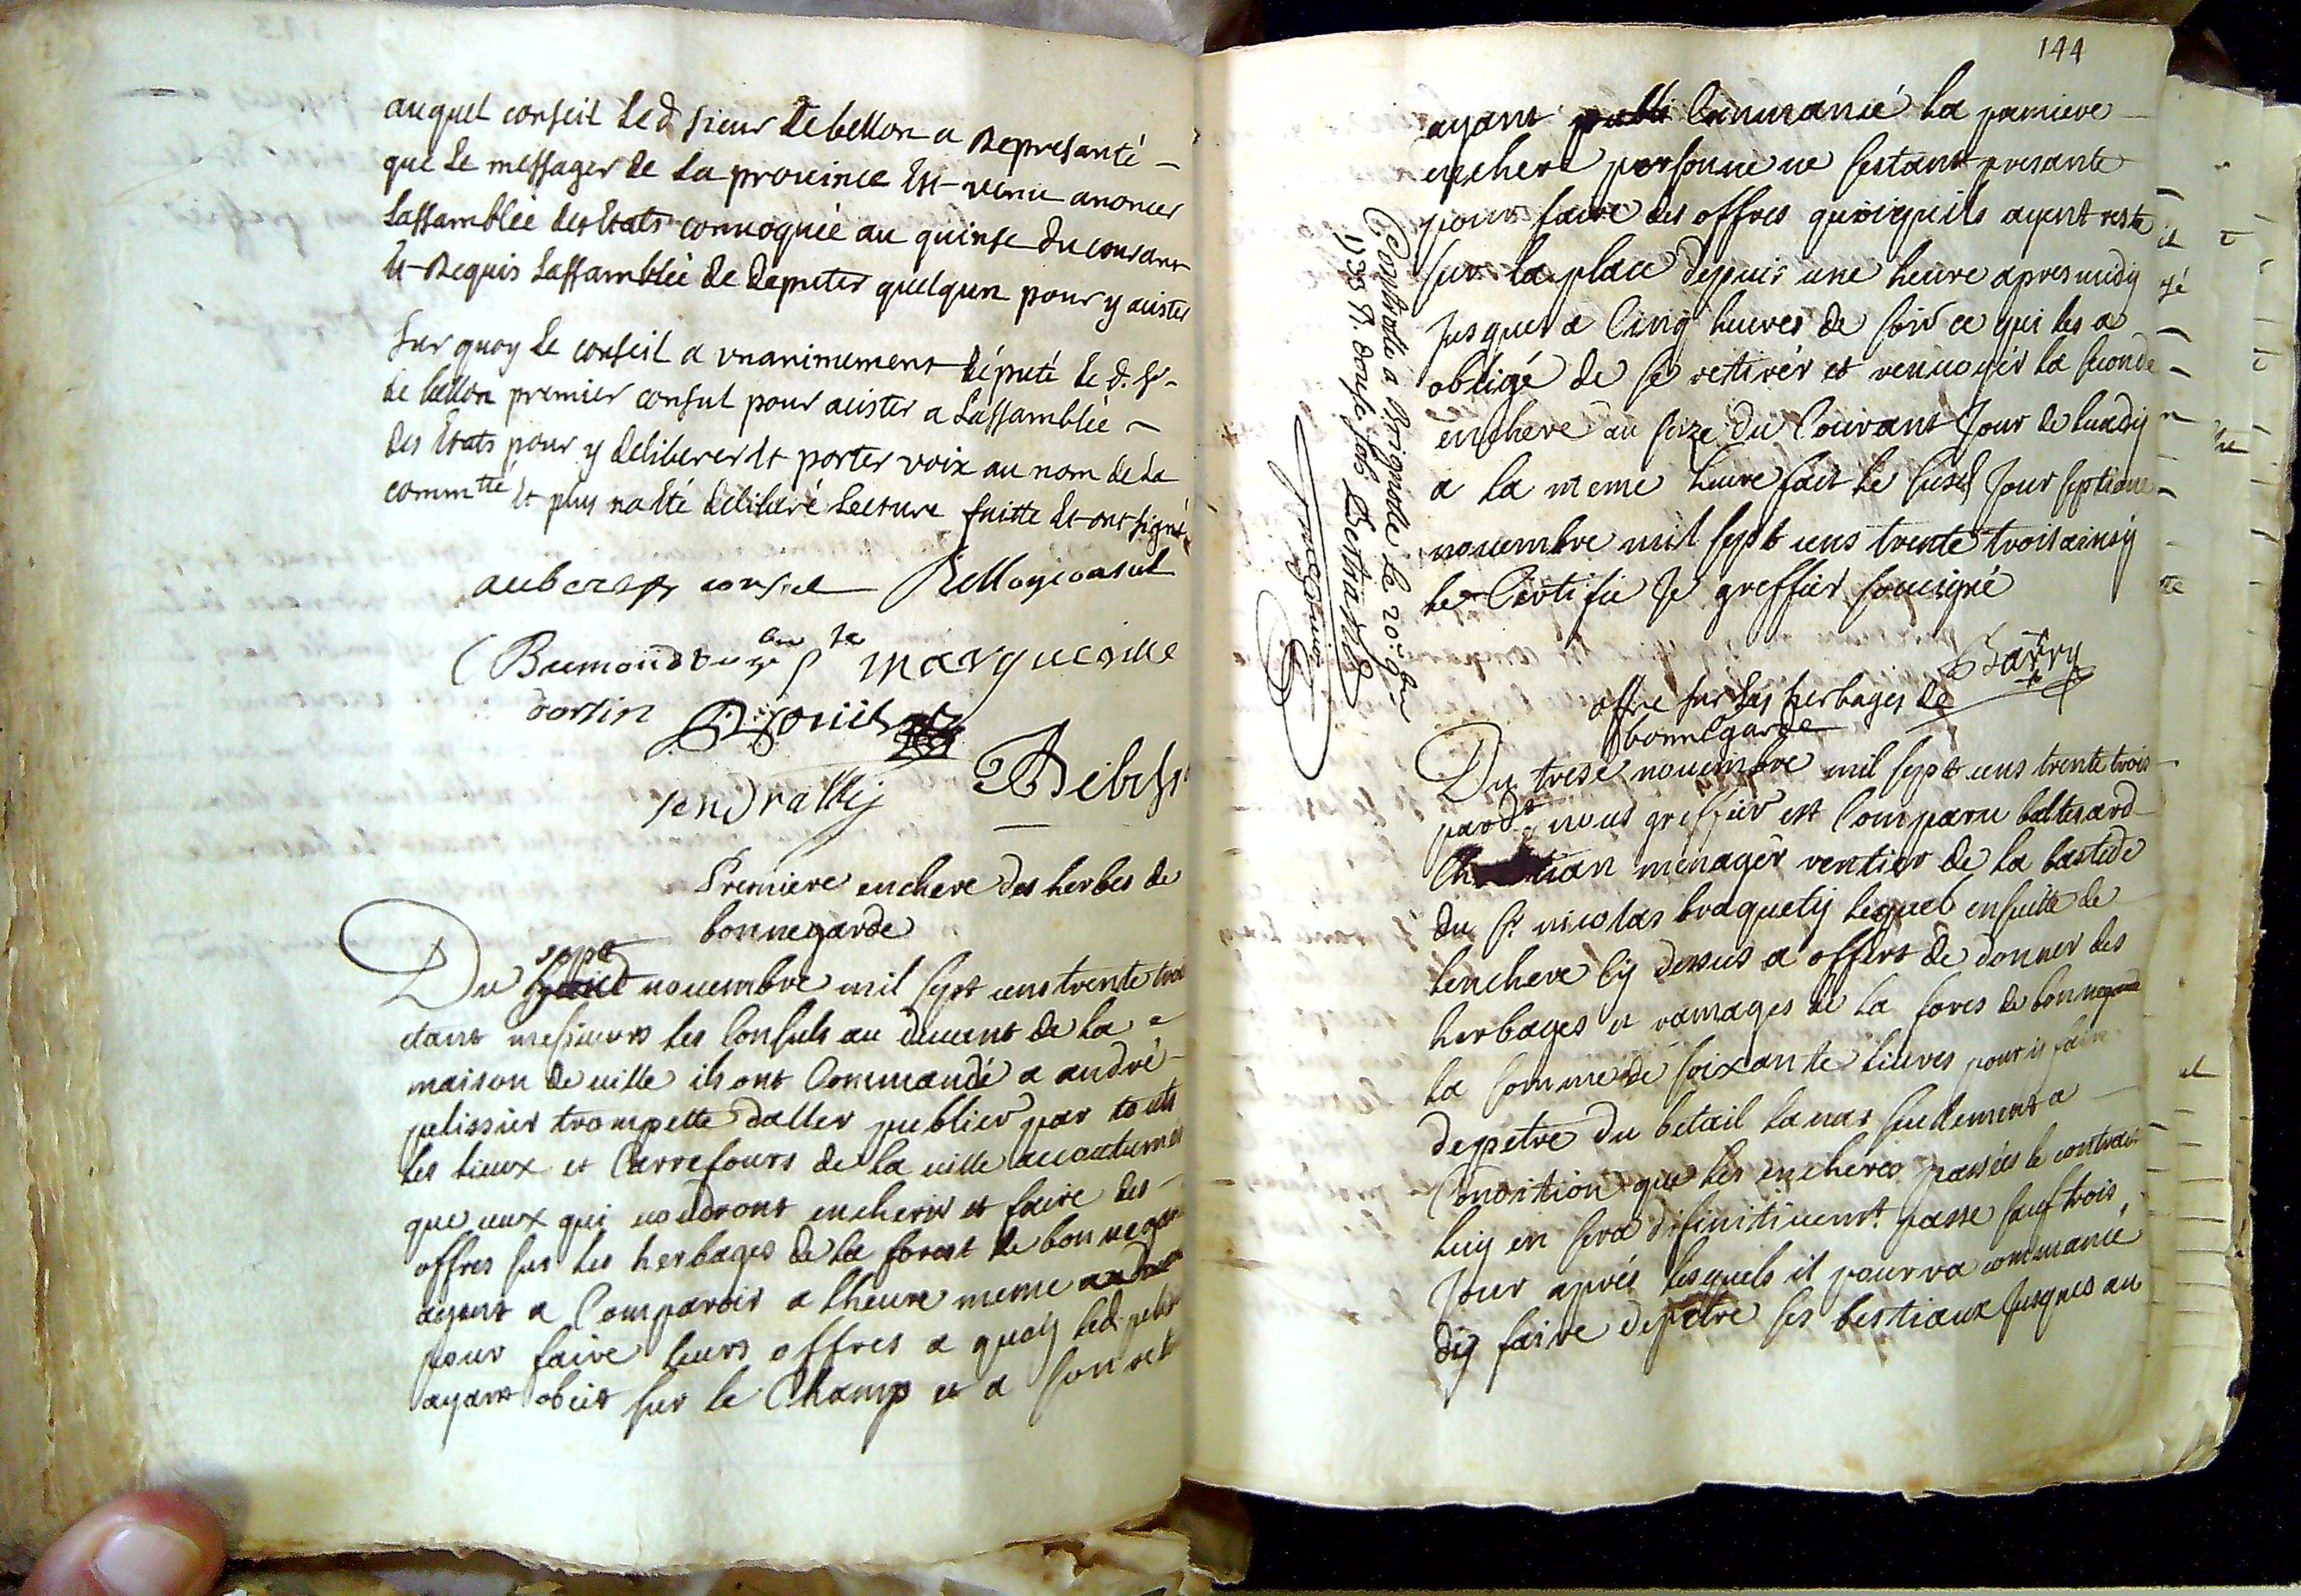 auquel conseil led sieur de bellon a Represanté
que le messager de la province Est venu anoncer
Lassamblée des Etats convoquée au quinse du courant
Et Requis Lassamblée de deputer quelqun pour y acister
sur quoy le conseil a unanimement député le d. sr
de bellon premier consul pour acister a Lassamblée
des Etats pour y deliberer Et porter voix au nom de la
commtté Et plus na esté deliberé Lecture faitte Et ont signé
aubert consul Bellon consul
margueritte
dorsin
Premiere enchere des herbes de
bonnegarde
Du sept novembre mil sept cens trente trois
etant messieurs les Consuls au devant de la
maison de ville ils ont Commandé a andré
pelissier trompette daller publier par touts
les lieux et Carrefours de la ville accoutumes
que ceux qui voudront encherir et faire des
offres sur les herbages de la forest de bonnegarde
ayent a Comparoir a lheure meme
pour faire leurs offres a quoy led pelissier
ayant obeit sur le Champ et a son ret
144
ayant Commancé la pamiere
enchere personne ne sestant presante
pour faire des offres quoiquils ayent resté
sur la place deppuis une heure apres midy
jusques a Cinq heures de soir ce qui les a
obligé de se rettirér et renvoyér la seconde
enchere au seize du Courant Jour de lundy
a la meme heure fait le susd Jour septieme
novembre mil sept cens trente trois ainsy
le Certifie Je greffier sousigné
Barry
Controllé a Brignolle le 20e 9bre
1733 R. douse sols
offre sur les herbages de
bonnegarde
Du trese novembre mil sept cens trente trois
pardt nous greffier est Comparu baltesard
menager rentier de la bastide
du sr nicolas braquety lequel ensuitte de
lenchere Cy dessus a offert de donner des
herbages et ramages de la fores de bonnegarde
la somme de soixante livres pour y faire
depetre du betail lanar seulement a
Condition que les encheres passées le contract
luy en sera difinitivemt passe sauf trois
Jour aprés lesquels il pourra commancé
dy faire depetre ses bestiaux jusques au